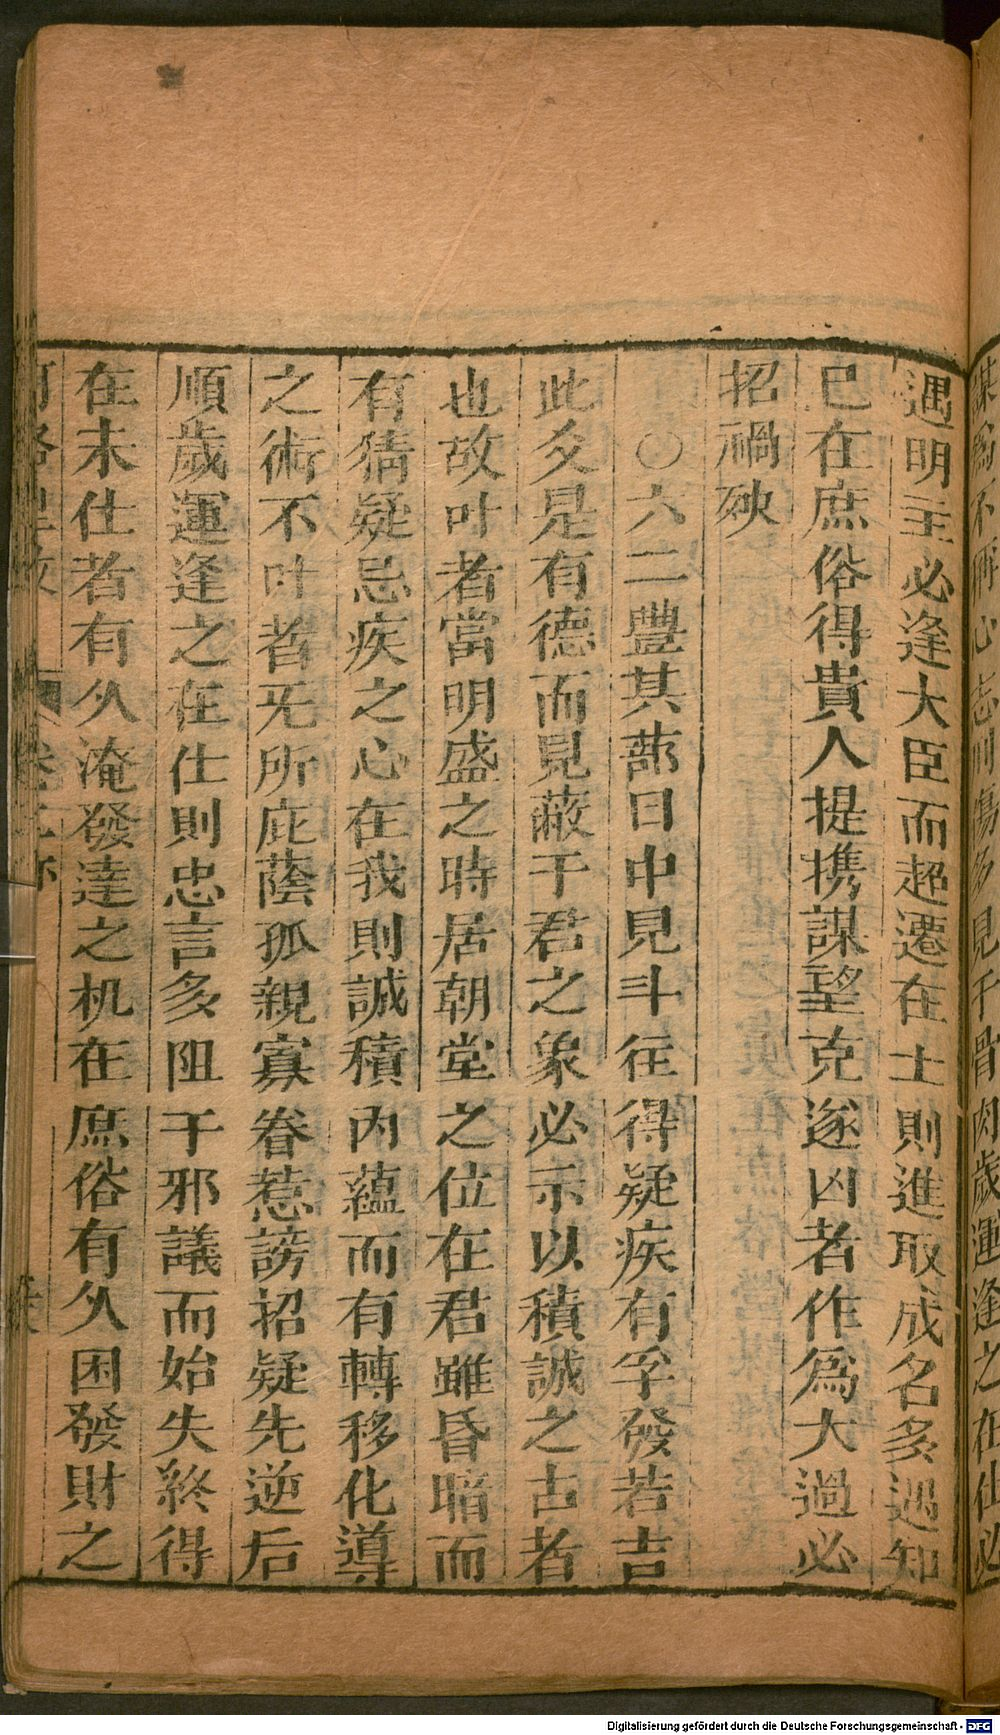 遇明主必逢大臣而超遷在士則進取成名多遇知
已在庶俗得貴人提携謀望克遂凶者作爲大過必
招禍殃
○六二豐其蔀日中見斗往得疑疾有孚發若吉
此爻是有德而見蔽于君之象必示以積誠之占者
也故叶者當明盛之時居朝堂之位在君雖昏暗而
有猜疑忌疾之心在我則誠積內蘊而有轉移化導
之術不叶者旡所庇蔭孤親寡眷惹謗招疑先逆后
順歲運逢之在仕則忠言多阻干邪議而始失終得
在未仕者有久淹發達之机在庶俗有久困發財之
Digitalisierung gefördert durch die Deutsche Forschungsgemeinschaft - DFG